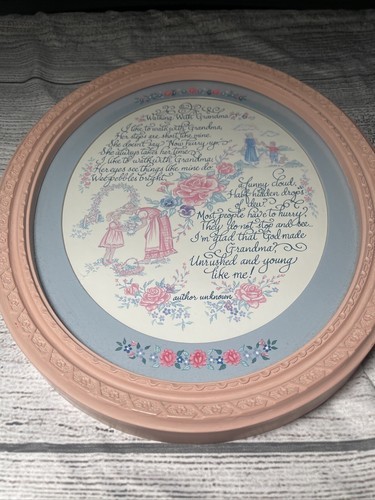 Walking With Grandma
I like to walk with Grandma,
Her steps are short like mine.
She doesn't say "Now hurry up"
She always takes her time.
I like to walk with Grandma,
Her eyes see things like mine do
Wee pebbles bright,
a funny cloud,
Half hidden drops
of dew.
Most people have to hurry
They do not stop and see
I'm glad that God made
Grandma
Unrushed and young
like me!
author unknown